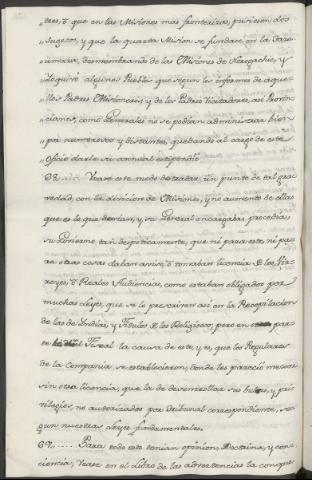 dres, ò que en las Misiones mas fronterizas, pusiesen dos
"Sugetos, y que la quarta Mision se fundase en la Tara-
"umara, desmembrando de las Misiones de
"algunos Pueblos que segun los informes de aque-
"llos Padres Misioneros, y de los Padres Visitadores, asi Provin-
"ciales, como Generales no se podian administrar bien
"por numerosos y distantes, quedando al cargo de este
"Oficio darle su annual estipendio
Vease este modo de tratar un punto de tal gra-
vedad, con la division de Misiones, y no aumento de ellas
que es lo que devian, y su General encargaba; procedia
su Gobierno tan despoticamente, que ni para esto, ni pa-
ra otras cosas daban aviso, ò tomaban licencia de los Vir-
reyes, ò Reales Audiencias, como estaban obligados por
muchas Leyes, que se les prescriven asi en la Recopilacion
de las de Indias, y Titulo de los Religiosos; pero en par-
te el Fiscal la causa de este, y es, que los Regulares
de la Compañia se establecieron donde les pareció mejor
sin otra licencia, que la de desenrrollar sus bulas, y pri-
vilegios, no autorizados por tribunal correspondiente, se-
gun nuestras Leyes fundamentales.
67..... Para todo esto tenian opinion, Doctrina, y con-
ciencia; Vease en el Libro de las advertencias la conque